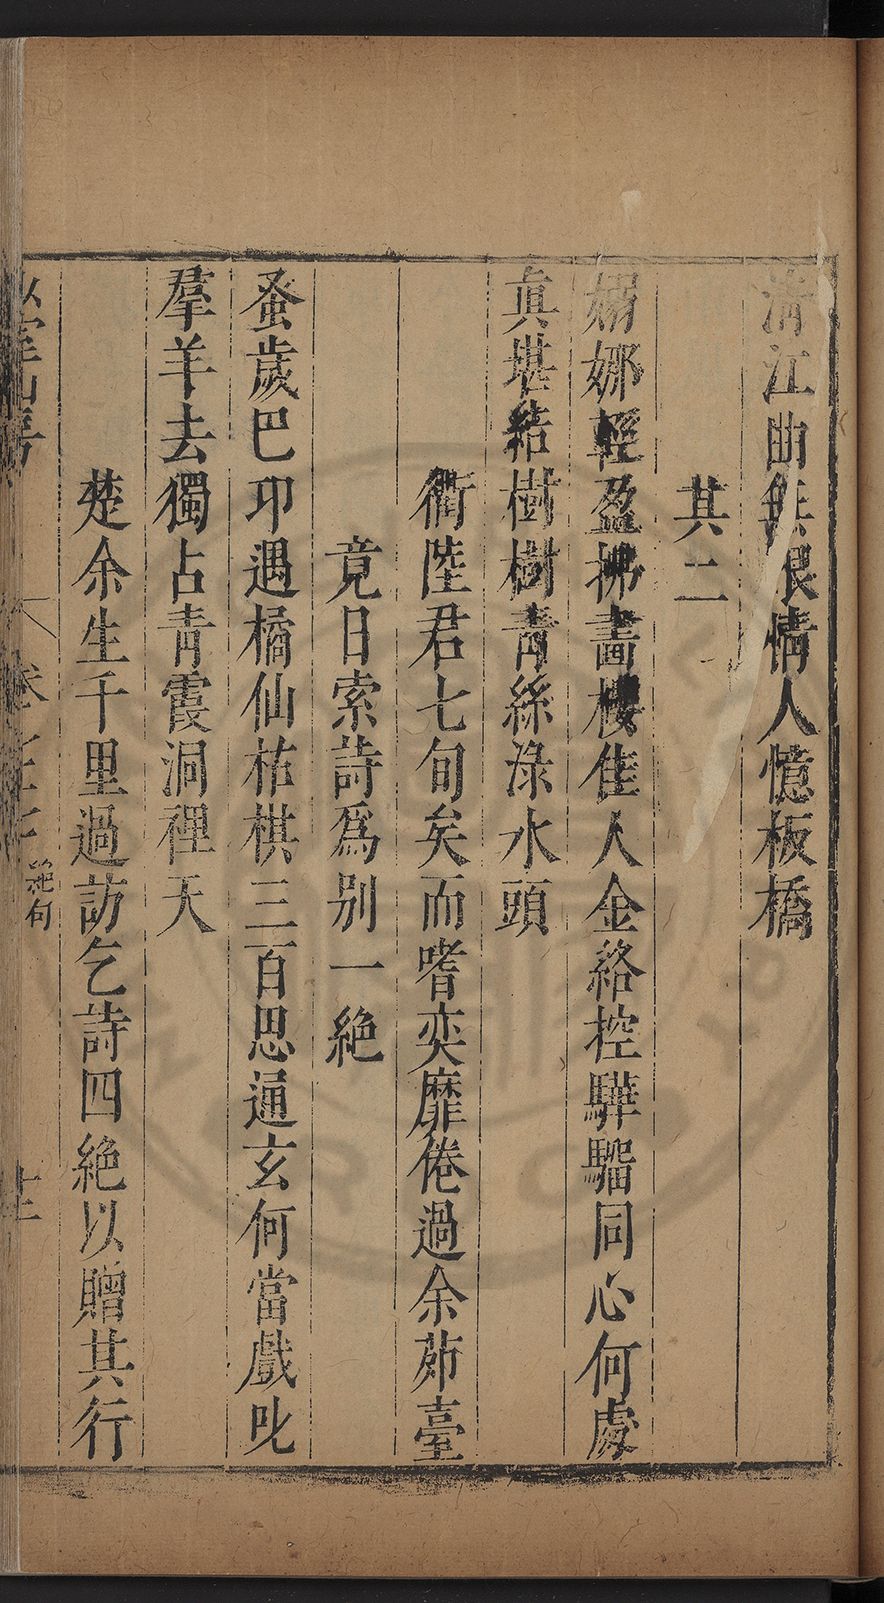 清江曲無限情人憶板橋
其二
嫋娜輕盈拂畫樓佳人金絡控驊騮同心何處
真堪結樹樹青絲淥水頭
衢陸君七旬矣而嗜奕靡倦過余茆臺
竟日索詩爲别一絶
蚤歲巴卭遇橘仙枯棋三百思通玄何當戲叱
羣羊去獨占青霞洞裡天
楚余生千里過訪乞詩四絶以贈其行
山房
卷之
絶句